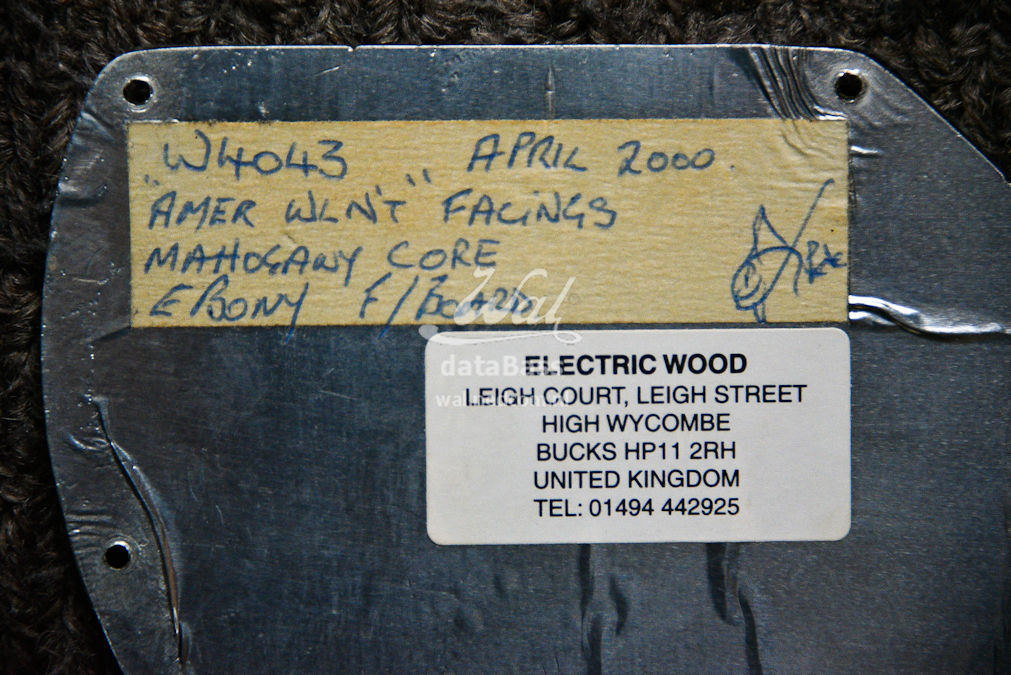 "W4043" APRIL 2000.
AMER WLN'T FACINGS
MAHOGANY CORE
EBONY F/BOARD
Wal
dataBass
ELECTRIC WOOD
LEIGH COURT, LEIGH STREET
HIGH WYCOMBE
BUCKS HP11 2RH
UNITED KINGDOM
TEL: 01494 442925